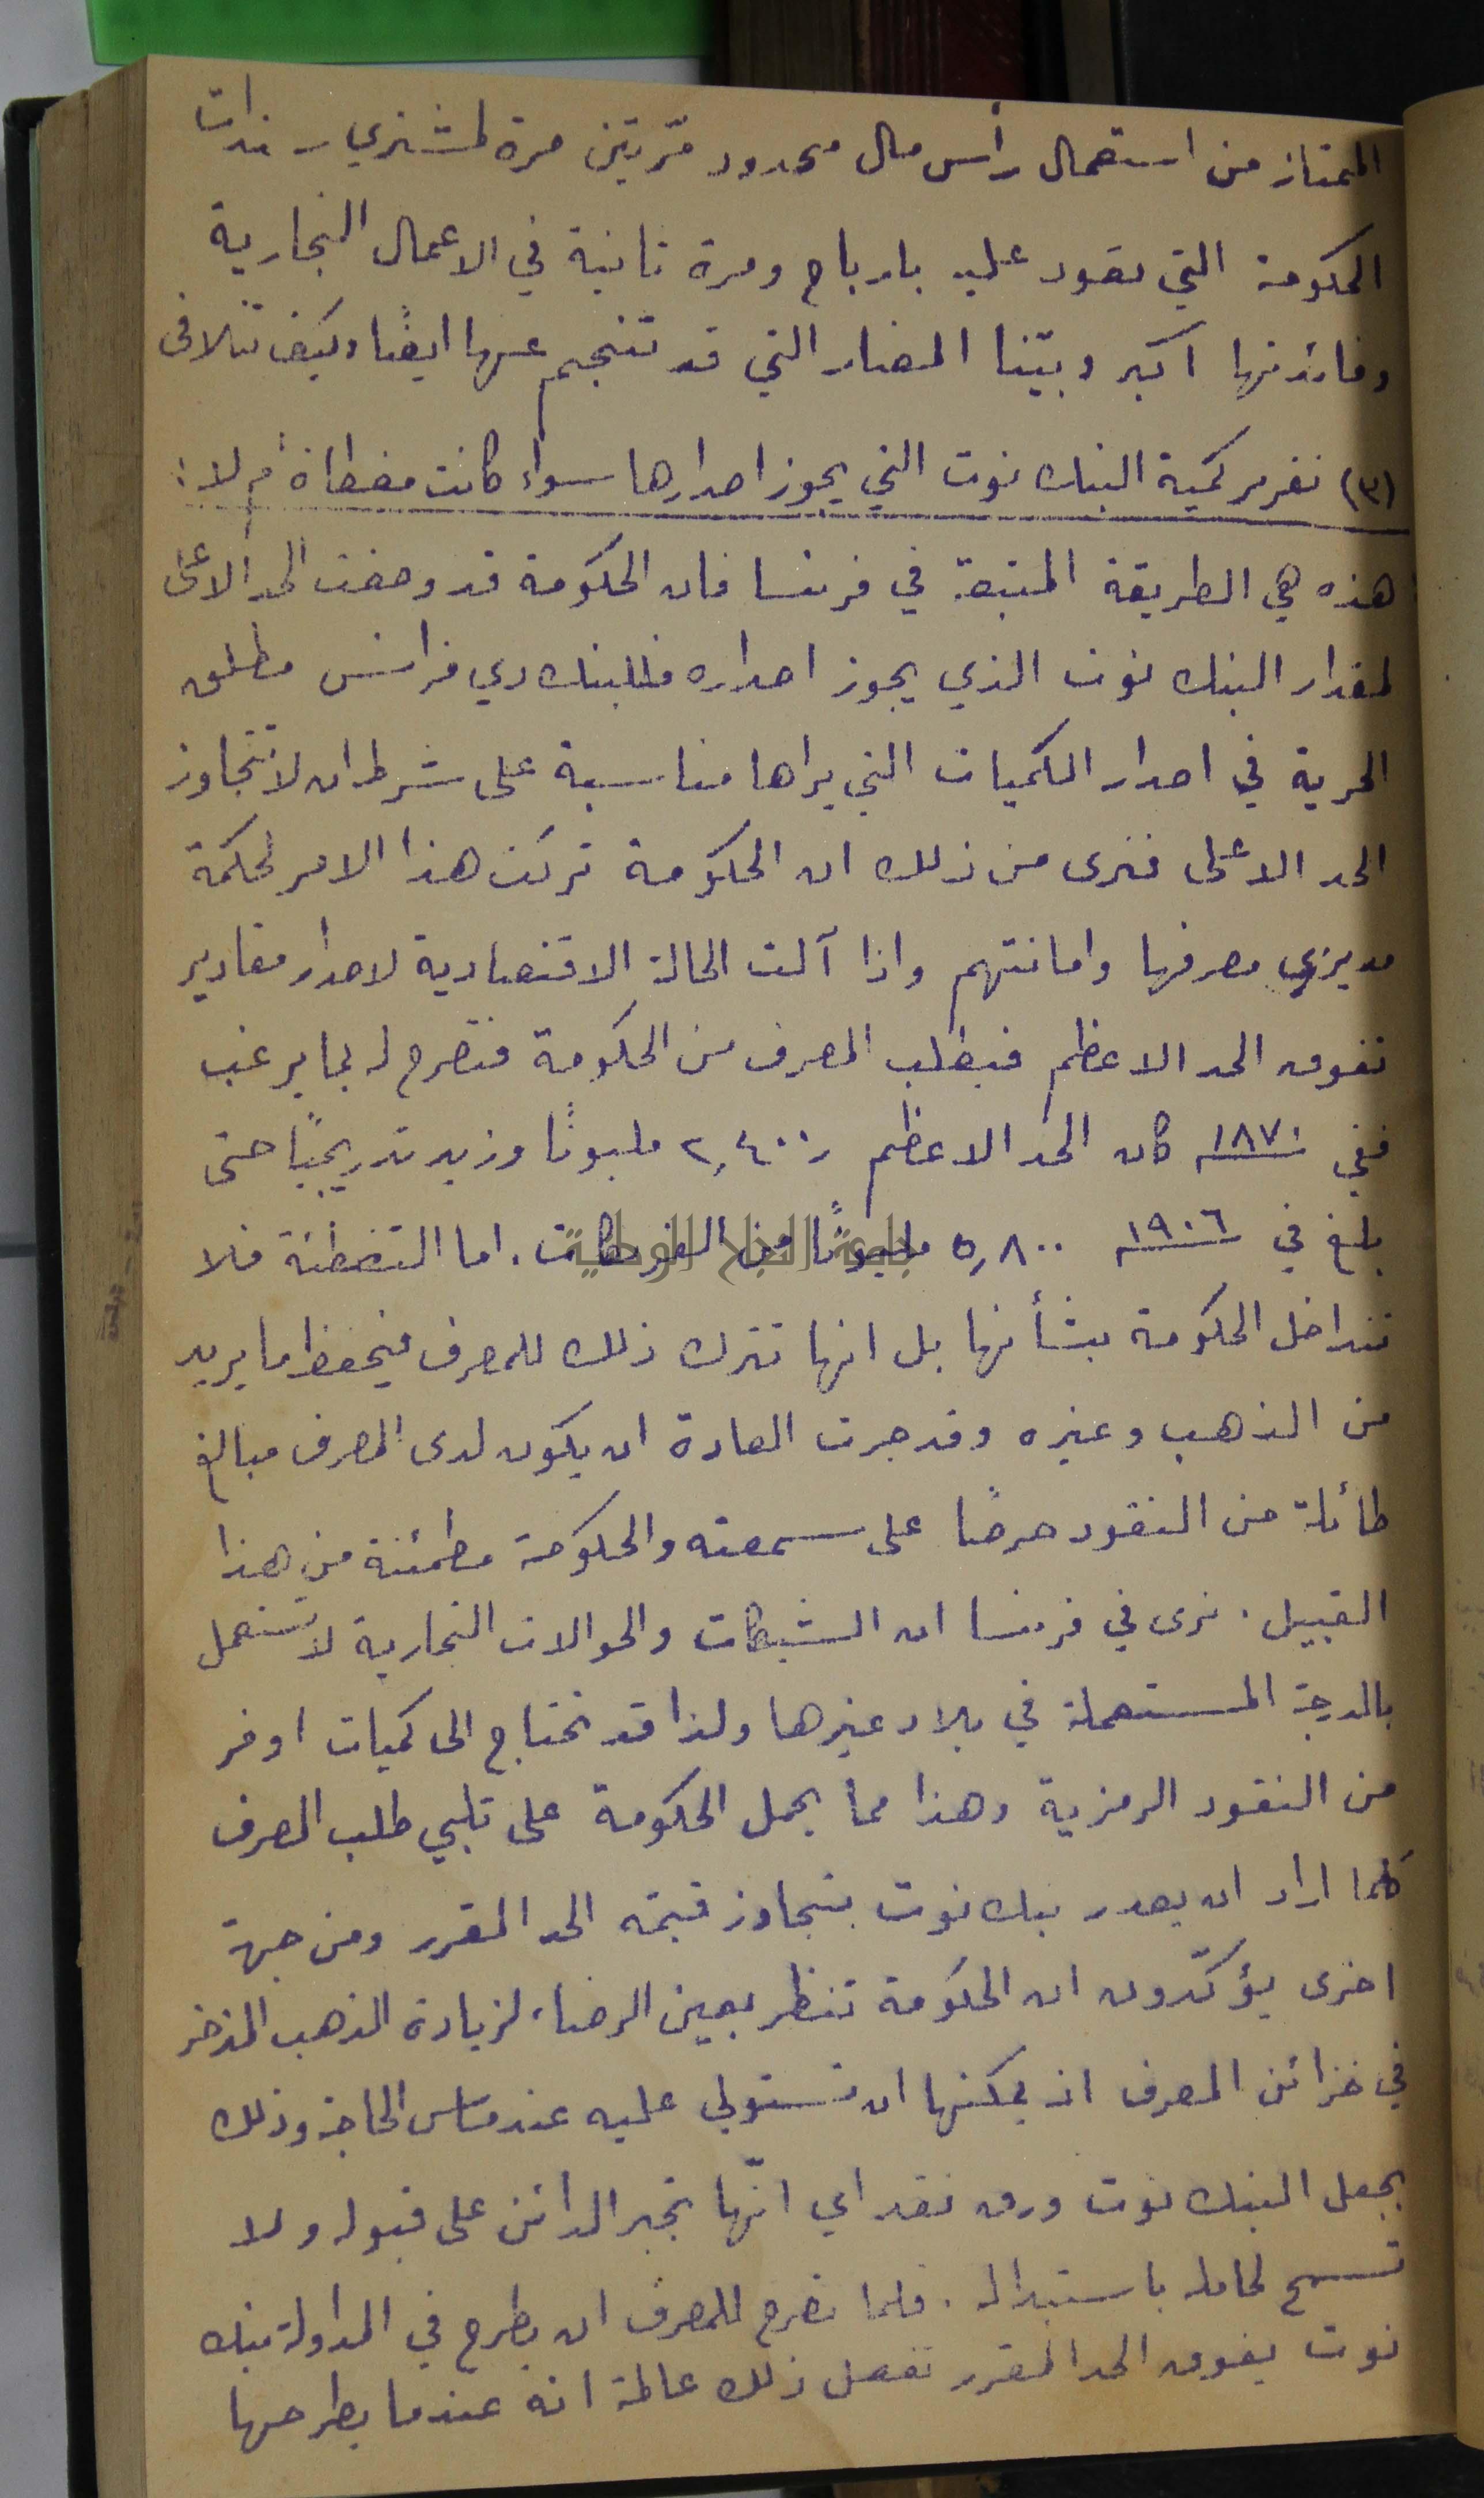 الممتاز من استعمال رأس مال محدود مرّتين مرة لمشتري سندات
الحكومة التي تعود عليه بارباح ومرة ثانية في الاعمال التجارية
وفائدتها اكبر وبيّنا المضار التي قد تنجم عنها ايضًا وكيف تتلافى
(٣) تقرير كمية البنك نوت التي يجوز اصدارها سواء كانت مغطاة أم لا :
هذه هي الطريقة المتبعة في فرنسا فان الحكومة قد وضعت الحد الاعلى
لمقدار البنك نوت الذي يجوز اصداره فللبنك دي فرانس مطلق
الحرية في اصدار الكميات التي يراها مناسبة على شرط ان لا تتجاوز
الحد الاعلى فنرى من ذلك ان الحكومة تركت هذا الامر لحكمة
مديري مصرفها وامانتهم واذا آلت الحالة الاقتصادية لاصدار مقادير
تفوق الحد الاعظم فيطلب المصرف من الحكومة فتصرح له بما يرغب
ففي ١٨٧٠ كان الحد الاعظم ٢,٤٠٠ مليونًا وزيد تدريجيًا حتى
بلغ في ١٩٠٦ ٥,٨٠٠ مليونًا من الفرنكات. اما التغطئة فلا
جامعة النجاح الوطنية
تتداخل الحكومة بشأنها بل انها تترك ذلك للمصرف فيحفظ ما يريد
من الذهب وغيره وقد جرت العادة ان يكون لدى المصرف مبالغ
طائلة من النقود حرصًا على سمعته والحكومة مطمئنة من هذا
القبيل. نرى في فرنسا ان الشيكات والحوالات التجارية لا تستعمل
بالدرجة المستعملة في بلاد غيرها ولذا قد تحتاج الى كميات اوفر
من النقود الرمزية وهذا مما يحمل الحكومة على تلبي طلب المصرف
كلما اراد ان يصدر بنك نوت يتجاوز قيمته الحد المقرر ومن جهة
اخرى يؤكّدون ان الحكومة تنظر بعين الرضاء لزيادة الذهب المذخر
في خزائن المصرف اذ يمكنها ان تستولي عليه عند مساس الحاجة وذلك
بجعل البنك نوت ورق نقد اي انّها تجبر الدائن على قبوله ولا
تسمح لحامله باستبداله. فلما تصرح للمصرف ان يطرح في المداولة بنك
نوت يفوق الحد المقرر تفعل ذلك عالمة انه عندما يطرحها